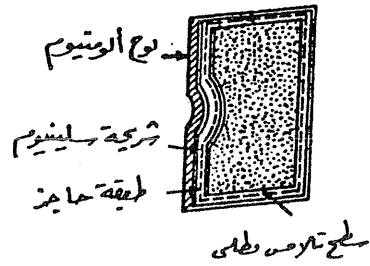 لوح ألومنيوم
شريحة سلينيوم
طبقة حاجز
سطح تلامس مطلى